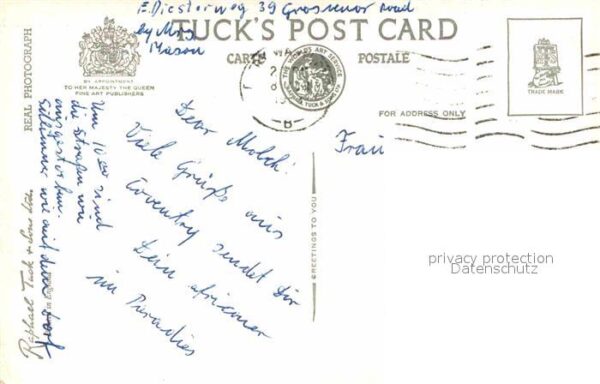 E. Diesterweg 39 Grosvenor Road
by Mrs
Mason
TUCK'S POST CARD
CARTE POSTALE
BY APPOINTMENT
TO HER MAJESTY THE QUEEN
FINE ART PUBLISHERS
THE WORLD'S ART SERVICE
RAPHAEL TUCK & SONS LTD
TRADE MARK
FOR ADDRESS ONLY
REAL PHOTOGRAPH
Raphael Tuck & Sons Ltd.
in England
GREETINGS TO YOU
Dear Molch!
Viele Grüße aus
Coventry sendet Dir
Dein
im Paradies
Um 10 sind
die Straßen wie
ausgestorben.
Schlimmer wie auf dem Dorf
Frau
privacy protection
Datenschutz